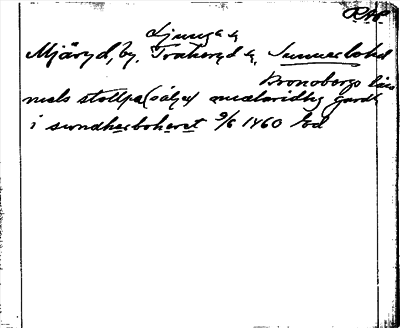 RAp.
Ljunga g
Mjäryd, by, Traheryd s, Sunnerbo hd
Kronobergs län
niels stollpa (säljer) mælaridhz gardh
i swndhæboheret 9/6 1460 Od